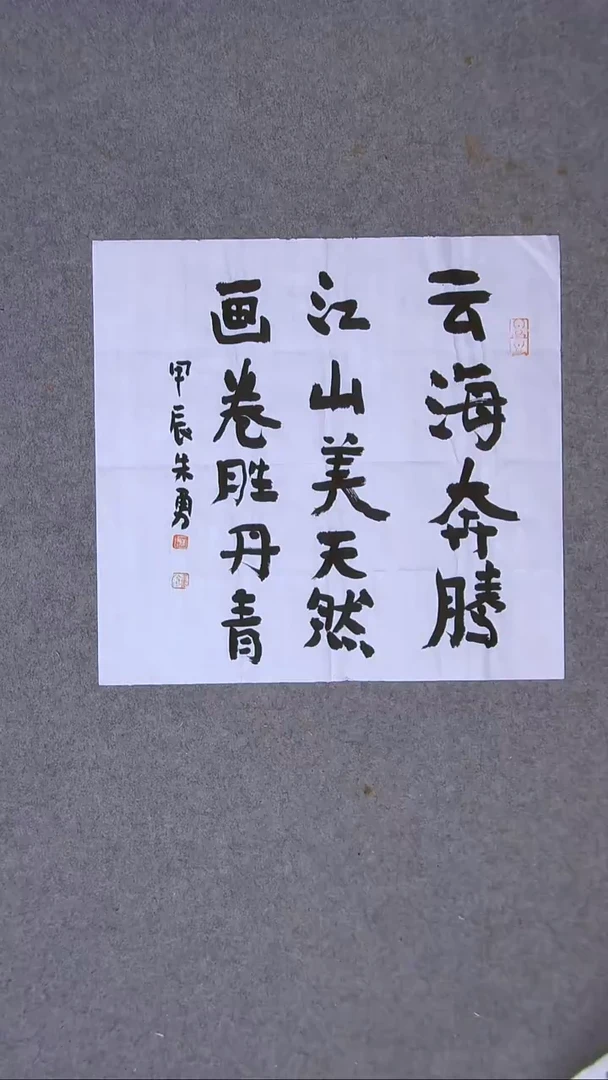 云海奔腾
江山美天然
画卷胜丹青
甲辰朱勇